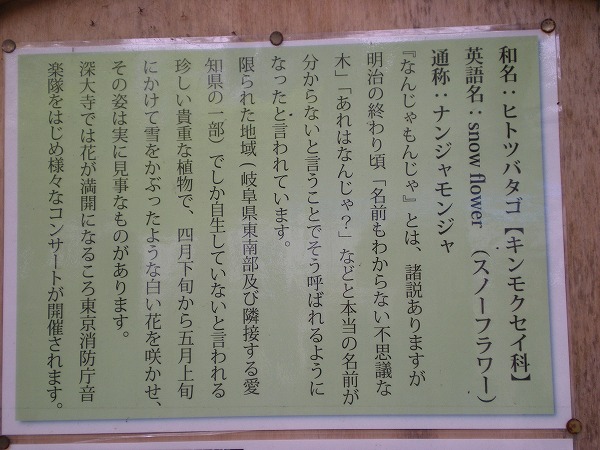 和名：ヒトツバタゴ【キンモクセイ科】
英語名：snow flower （スノーフラワー）
通称：ナンジャモンジャ
『なんじゃもんじゃ』とは、諸説ありますが
明治の終わり頃「名前もわからない不思議な
木」「あれはなんじゃ？」などと本当の名前が
分からないと言うことでそう呼ばれるように
なったと言われています。
限られた地域（岐阜県東南部及び隣接する愛
知県の一部）でしか自生していないと言われる
珍しい貴重な植物で、四月下旬から五月上旬
にかけて雪をかぶったような白い花を咲かせ、
その姿は実に見事なものがあります。
深大寺では花が満開になるころ東京消防庁音
楽隊をはじめ様々なコンサートが開催されます。